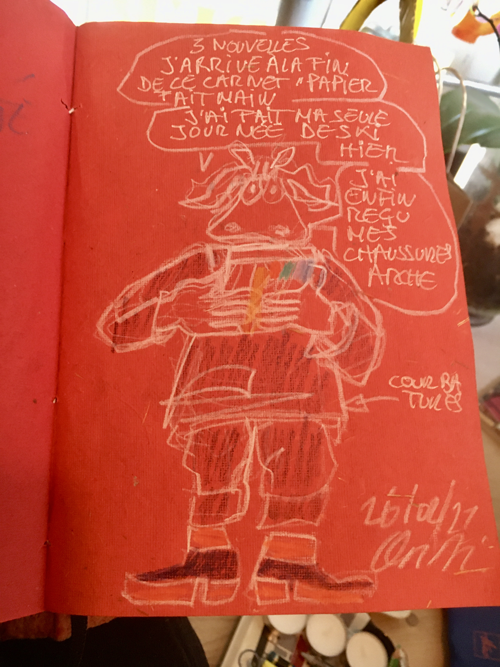 3 NOUVELLES
J'ARRIVE A LA FIN
DE CE CARNET "PAPIER
FAIT MAIN
J'AI FAIT MA SEULE
JOURNÉE DE SKI
HIER
J'AI
ENFIN
REÇU
MES
CHAUSSURES
ARCHE
COURBA
TURES